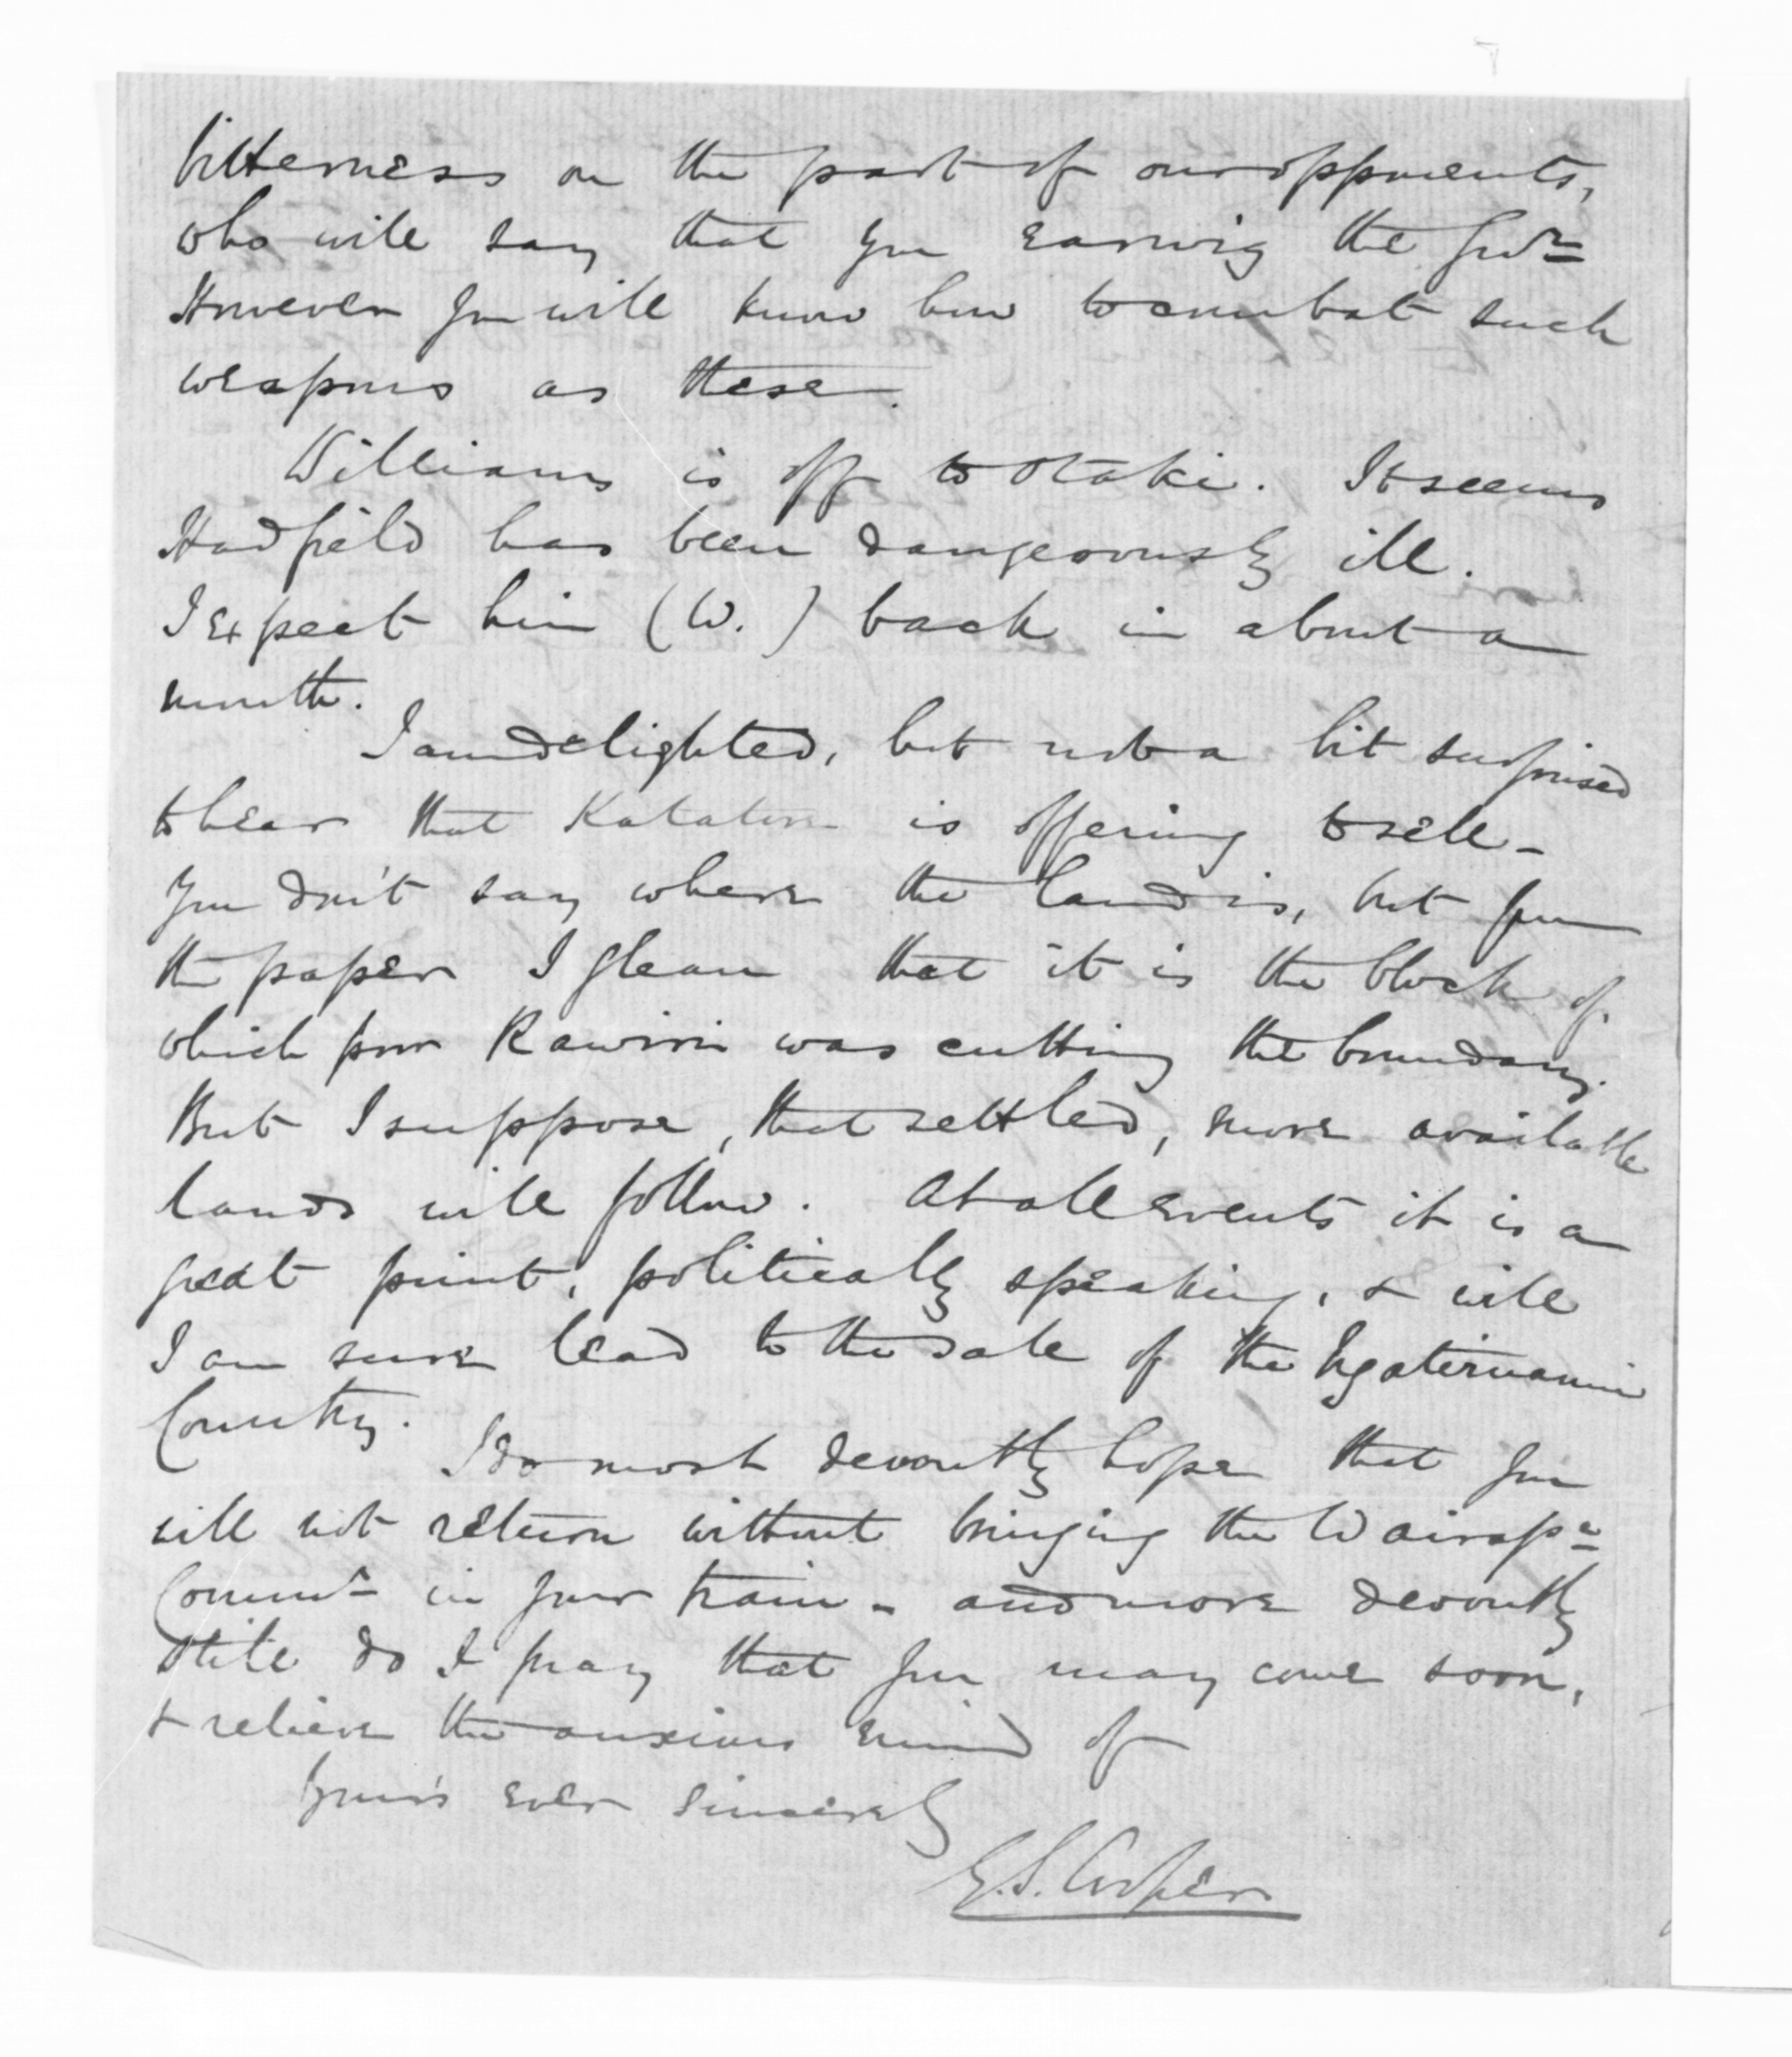 bitterness on the part of our opponents,
who will say that you earwig the Govr.
However you will know how to combat such
weapons as these.
Williams is off to Otaki. It seems
Hadfield has been dangerously ill.
I expect him (W.) back in about a
month.
I am delighted, but not a bit surprised
to hear that Katatore is offering to sell -
You don't say where the land is, but from
the paper I glean that it is the block of
which poor Rawiri was cutting the boundary.
But I suppose, that settled, more available
lands will follow. At all events it is a
great point, politically speaking, & will
I am sure lead to the sale of the Ngatiruanui
Country.
I do most devoutly hope that you
will not return without bringing the Wairapa
Commr. in your train - and more devoutly
still do I pray that you may come soon,
& relieve the anxious mind of
Your's ever sincerely
G.S. Cooper